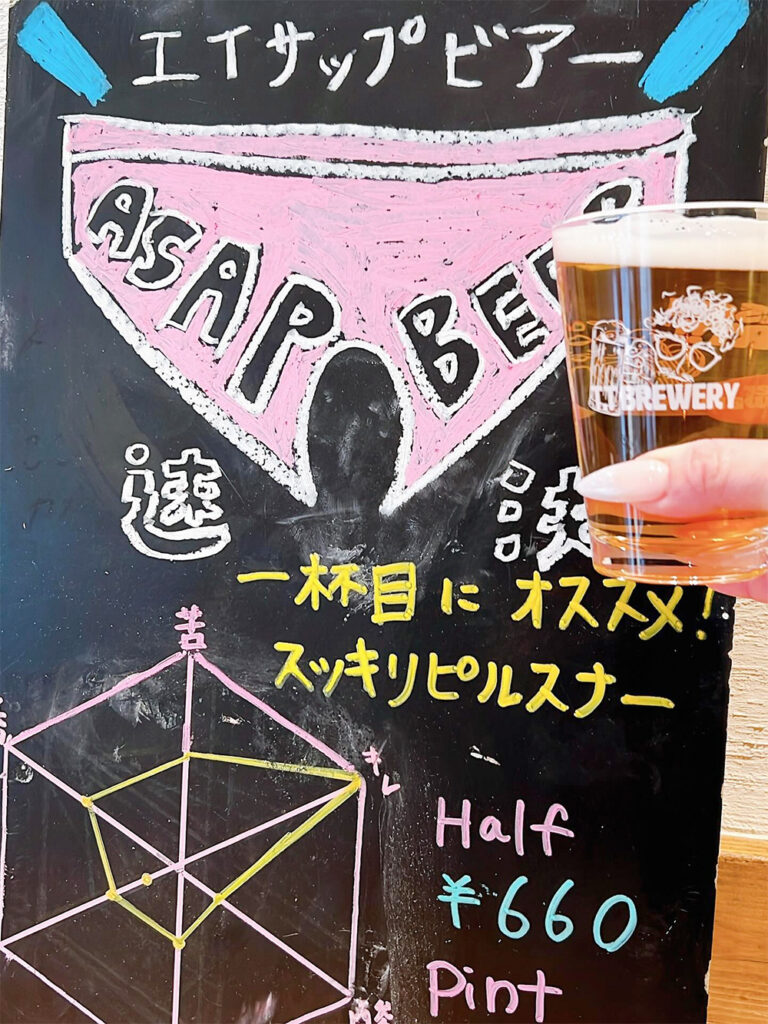 エイサップビアー
ASAP BEER
LTBREWERY
速
一杯目にオススメ!
スッキリピルスナー
苦
キレ
Half
¥660
Pint
酸